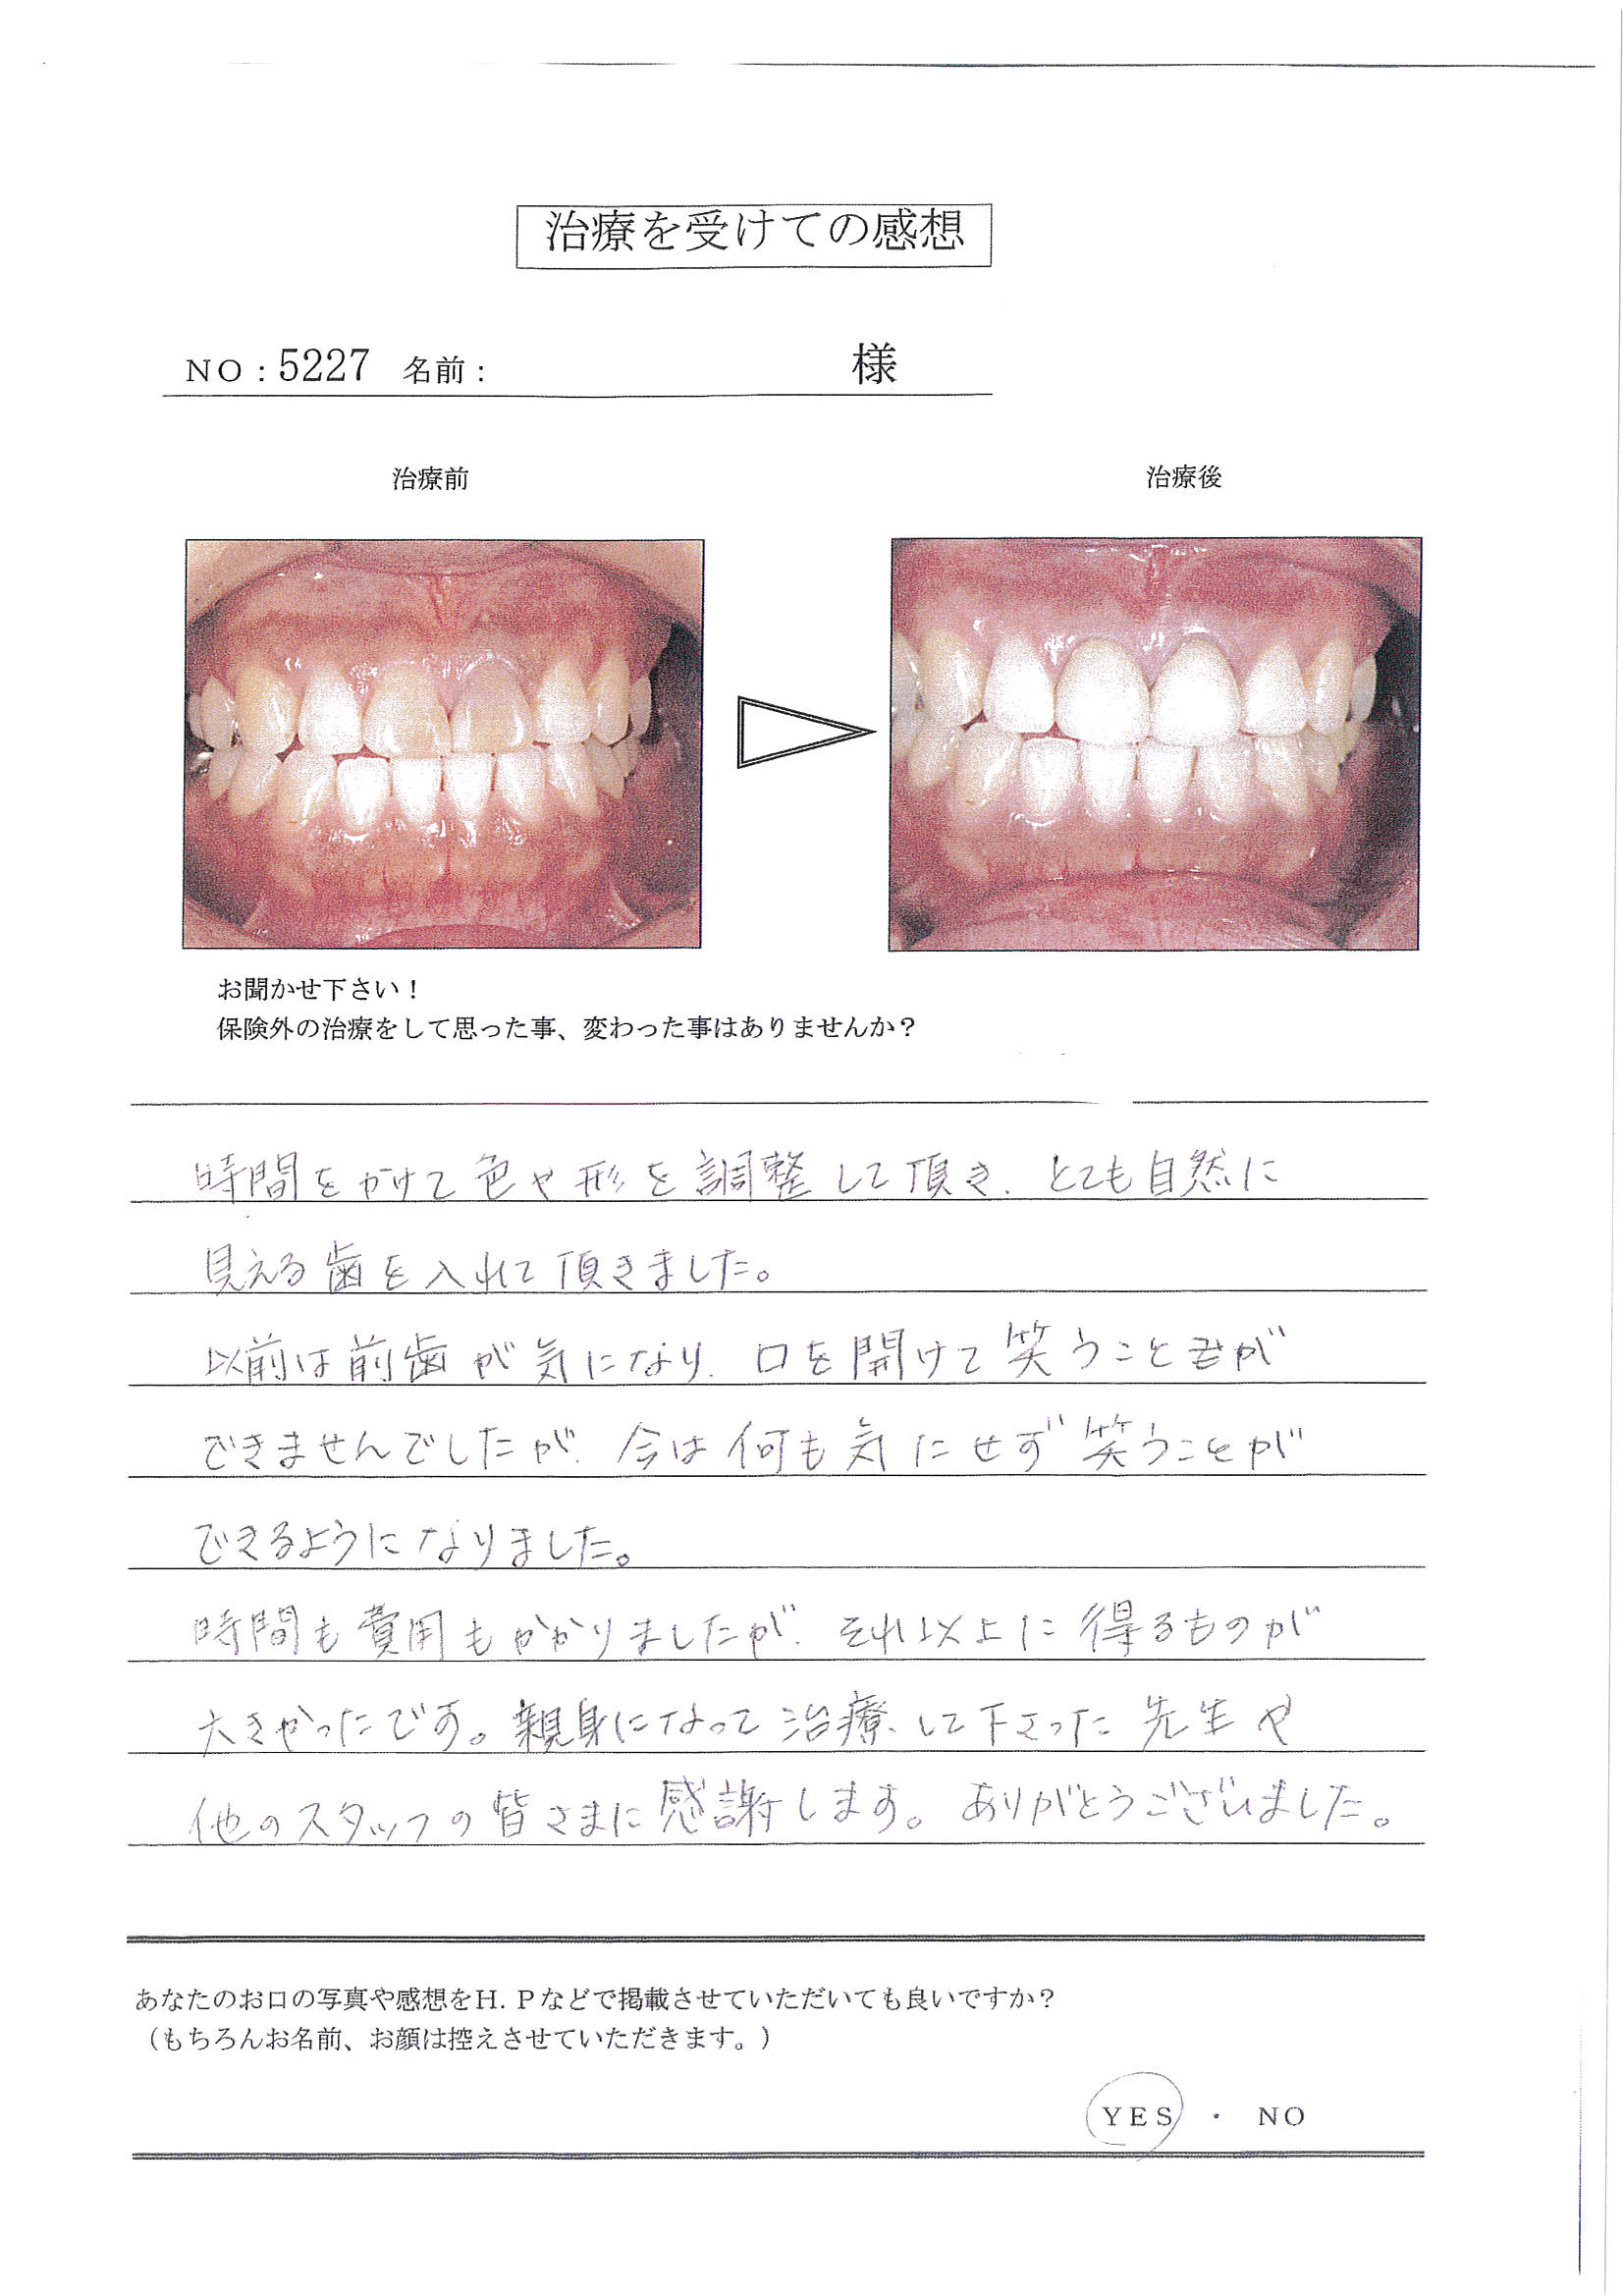 治療を受けての感想
NO：5227 名前： 様
治療前
治療後
お聞かせ下さい！
保険外の治療をして思った事、変わった事はありませんか？
時間をかけて色や形を調整して頂き、とても自然に
見える歯を入れて頂きました。
以前は前歯が気になり、口を開けて笑うことが
できませんでしたが、今は何も気にせず笑うことが
できるようになりました。
時間も費用もかかりましたが、それ以上に得るものが
大きかったです。親身になって治療して下さった先生や
他のスタッフの皆さまに感謝します。ありがとうございました。
あなたのお口の写真や感想をH.Pなどで掲載させていただいても良いですか？
（もちろんお名前、お顔は控えさせていただきます。）
YES ・ NO